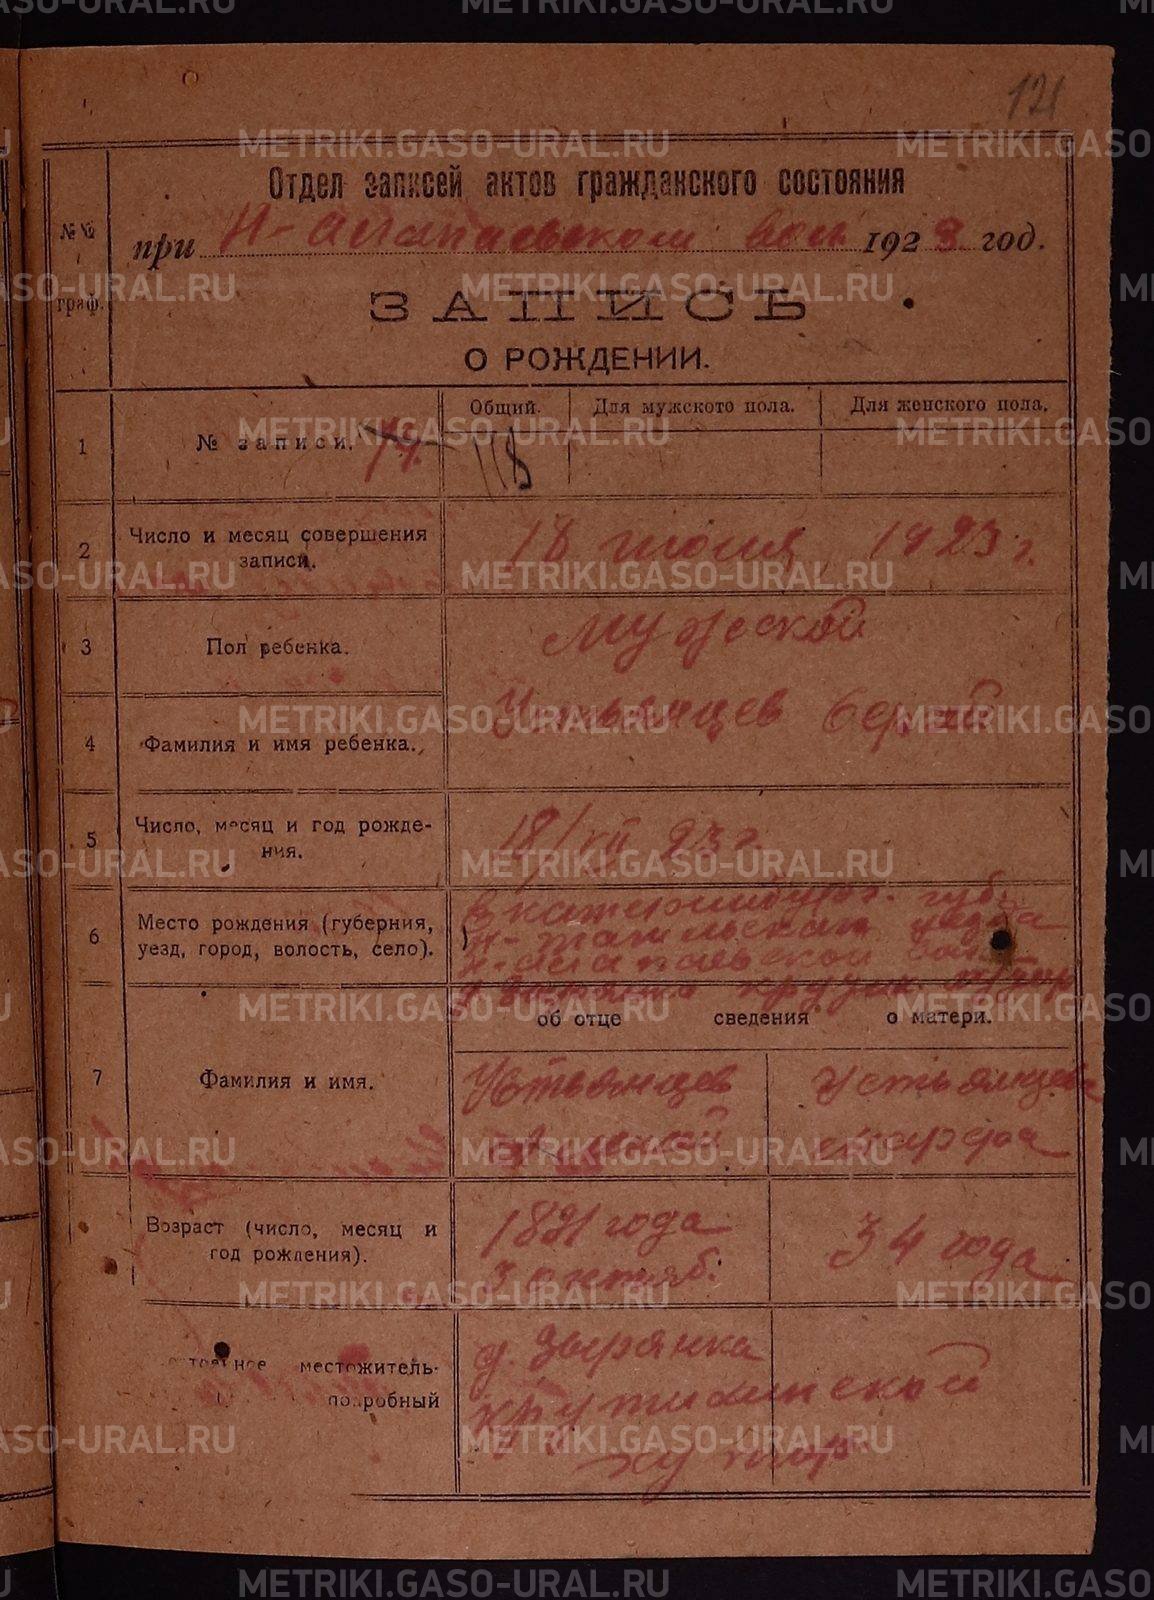 121
Отдел записей актов гражданского состояния
при Н-Алапаевском вол. 1923 год.
№№ граф.
ЗАПИСЬ
О РОЖДЕНИИ.
Общий. Для мужского пола. Для женского пола.
1 № записи. 74. 118
2 Число и месяц совершения записи. 18 июля 1923 г.
3 Пол ребенка. Мужской
4 Фамилия и имя ребенка. Устьянцев Сергей
5 Число, месяц и год рождения. 18/VII 23 г.
6 Место рождения (губерния, уезд, город, волость, село). Екатеринбург. губ.
Н-Тагильской уезда
Н-Алапаевской
хутор
об отце сведения о матери.
7 Фамилия и имя. Устьянцев Алексей Устьянцева Марфа
Возраст (число, месяц и год рождения). 1891 года 3 октяб. 34 года
местожительподробный
д. Зырянка
Крутихинской
хутор
METRIKI.GASO-URAL.RU